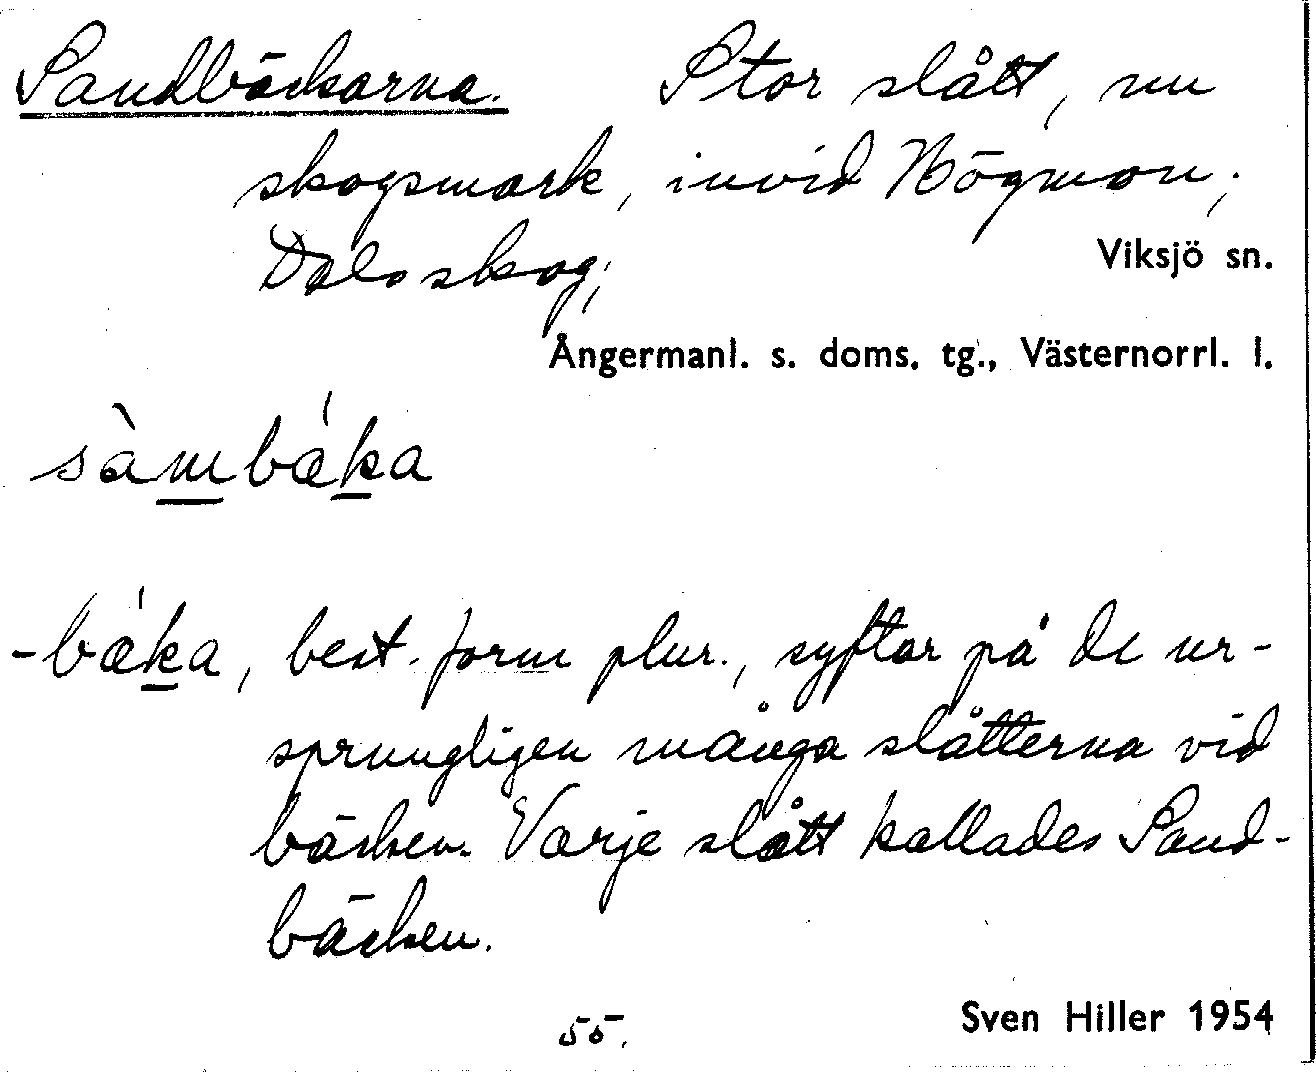 Sandbäckarna. Stor slått, nu
skogsmark, invid Högmon;
Dalsskog; Viksjö sn.
Ångermanl. s. doms. tg., Västernorrl. l.
sàmbǽka
-bǽka, best. form plur., syftar på de ur-
sprungligen många slåtterna vid
bäcken. Varje slått kallades Sand-
bäcken.
55. Sven Hiller 1954